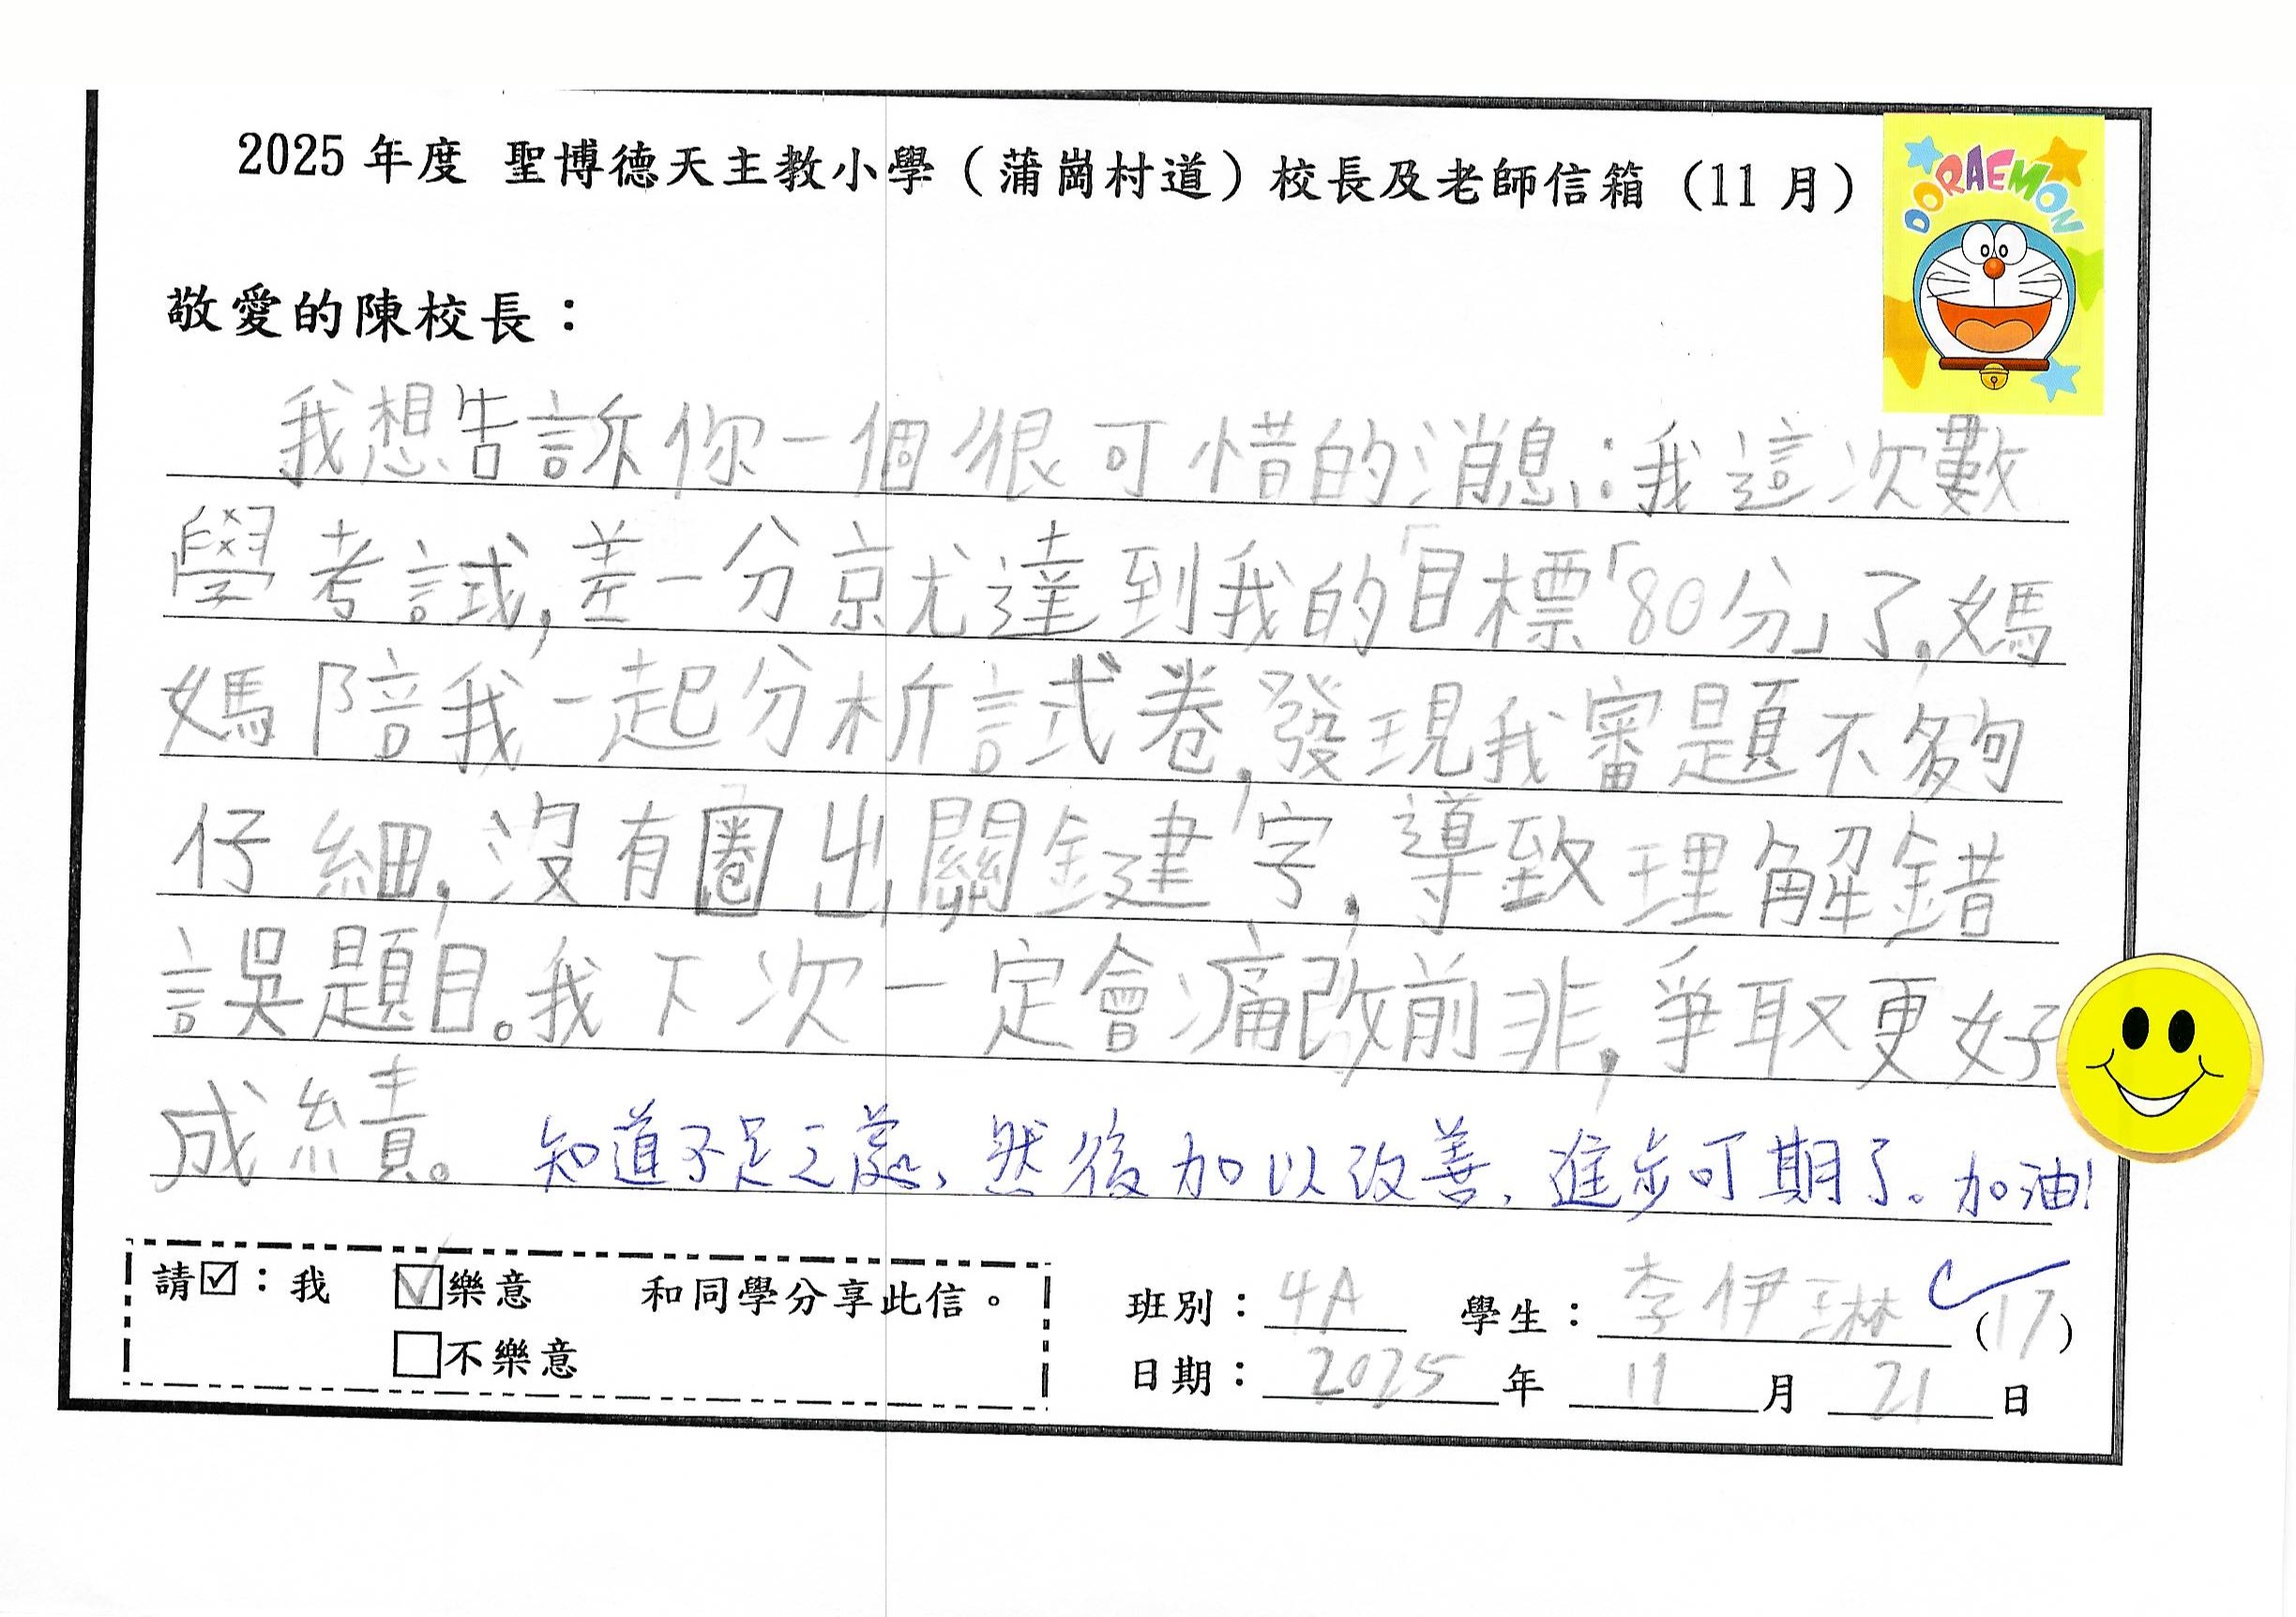 2025 年度 聖博德天主教小學（蒲崗村道）校長及老師信箱（11 月）
DORAEMON
敬愛的陳校長：
我想告訴你一個很可惜的消息：我這次數
學考試，差一分就達到我的「目標「80分」了，媽
媽陪我一起分析試卷，發現我審題不夠
仔細，沒有圈出關鍵字，導致理解錯
誤題目。我下次一定會痛改前非，爭取更好
成績。
知道不足之處，然後加以改善，進步可期了。加油！
請☑：我 ☑樂意 和同學分享此信。
□不樂意
班別：4A 學生：李伊琳（17）
日期：2025年11月21日